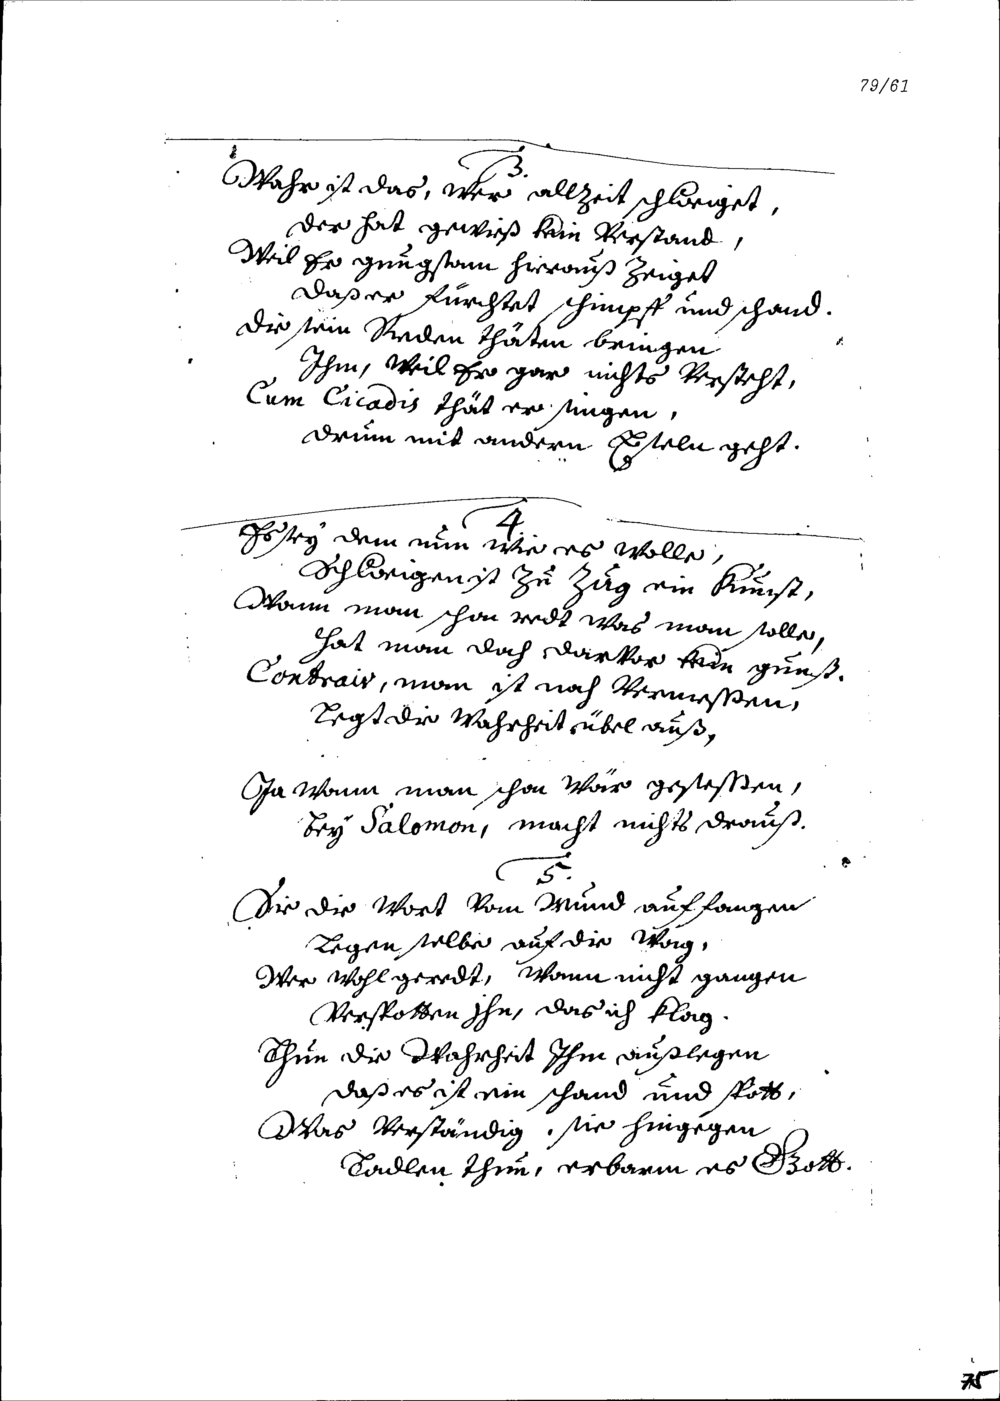 79/61
3.
Wahr ist das, wer allzeit schweiget,
der hat gewiß kein Verstand,
Weil Er gnugsam hierauß zeiget
daß er fürchtet schimpff und schand.
die sein Reden thäten bringen
Ihm, weil Er gar nichts versteht,
Cum Cicadis thät er singen,
drum mit andern Eseln geht.
4
Es sey dem nun wie es wolle,
Schweigen ist zu Zug ein Kunst,
Wann man schon redt was man solle,
hat man doch darvor kein gunst.
Contrair, man ist noch vermessen,
Legt die Wahrheit übel auß,
Ja wann man schon wär gesessen,
bey Salomon, macht nichts drauß.
5.
Sie die Wort vom Mund auffangen
Legen selbe auf die Wag,
Wer wohl geredt, wann nicht gangen
Verspotten ihn, das ich klag.
Thun die Wahrheit Ihm außlegen
daß es ist ein schand und spott,
Was verständig, sie hingegen
Tadlen thun, erbarm es Gott.
75